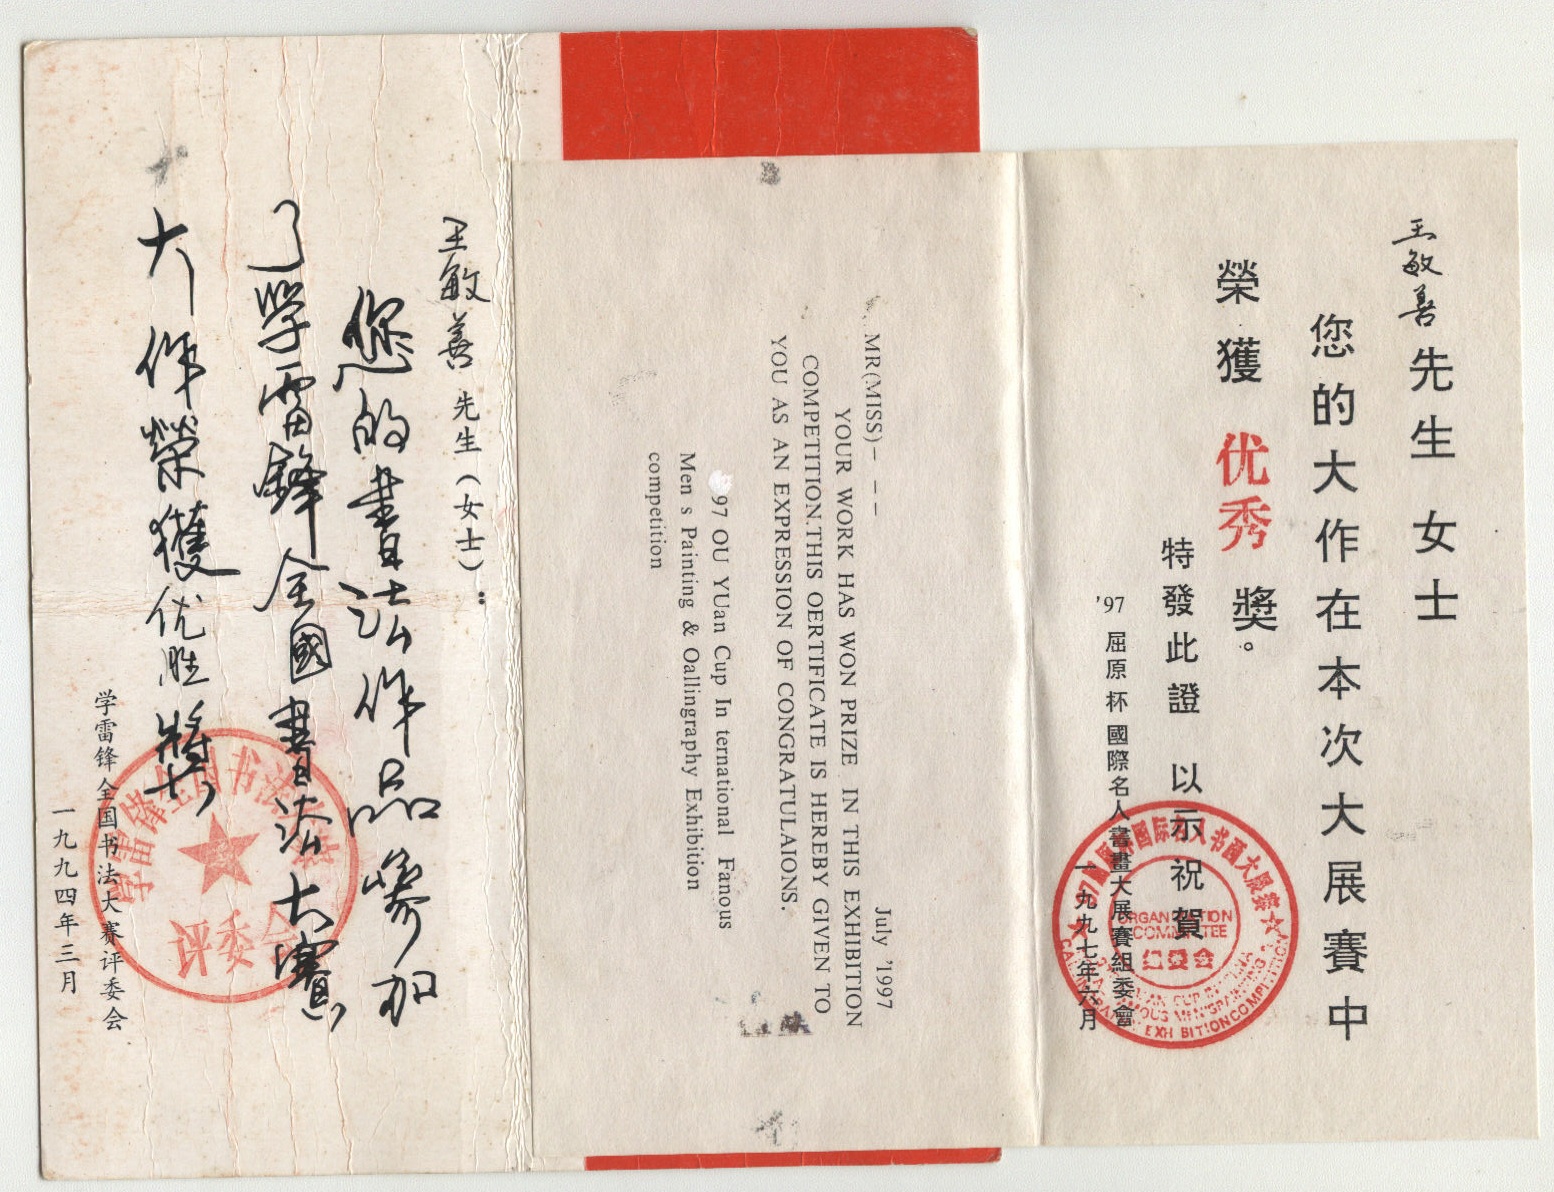 王敏善先生 女士
您的大作在本次大展賽中
榮獲优秀獎。
特發此證 以示祝賀
'97屈原杯國際名人書畫大展賽組委會
一九九七年六月
ORGANIZATION
COMMITTEE
組委會
July '1997
MR(MISS)- - -
YOUR WORK HAS WON PRIZE IN THIS EXHIBITION
COMPETITION.THIS OERTIFICATE IS HEREBY GIVEN TO
YOU AS AN EXPRESSION OF CONGRATULAIONS.
97 OU YUan Cup In ternational Fanous
Men s Painting & Oallingraphy Exhibition
competition
王敏善先生(女士):
您的書法作品參加
了學雷鋒全國書法大賽
大作榮獲优胜獎
学雷锋全国书法大赛评委会
一九九四年三月
学雷锋全国书法大赛
评委会